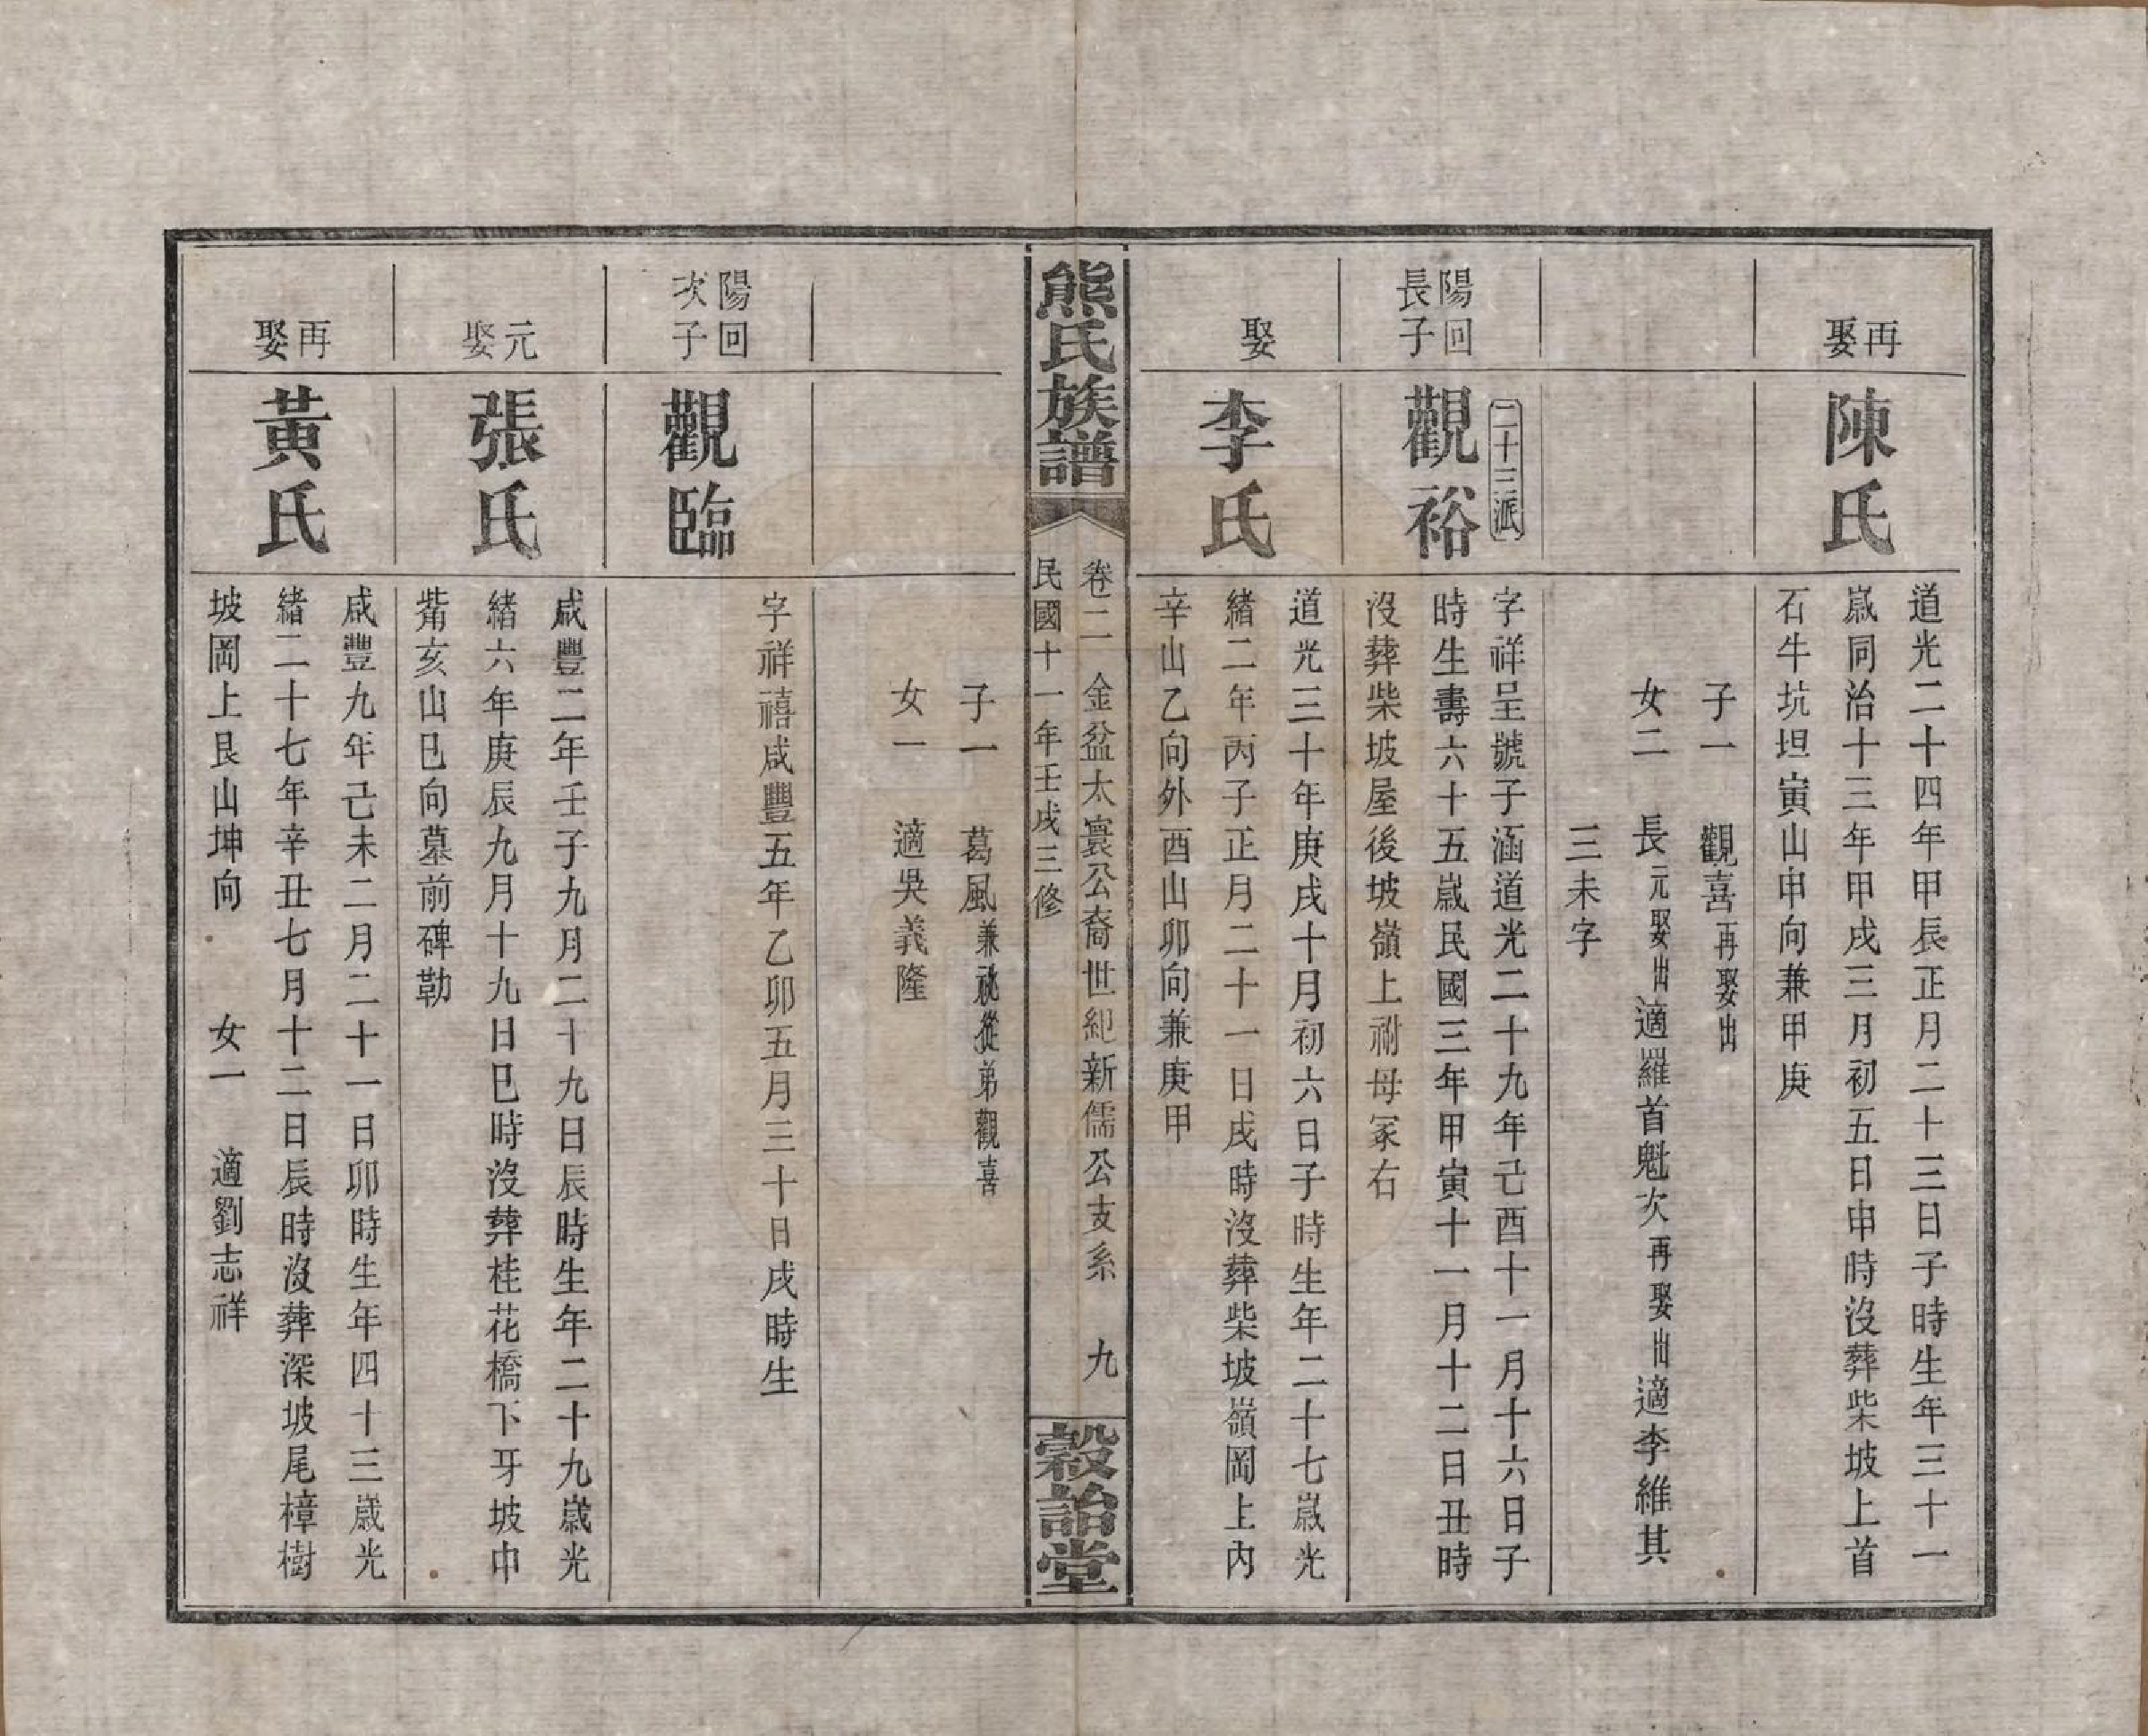 再娶
陳氏
道光二十四年甲辰正月二十三日子時生年三十一
歲同治十三年甲戌三月初五日申時沒葬柴坡上首
石牛坑坦寅山申向兼甲庚
子一　觀喜再娶出
女二　長元娶出適羅首魁次再娶出適李維其
三未字
二十三派
陽回長子
觀裕
字祥呈號子涵道光二十九年己酉十一月十六日子
時生壽六十五歲民國三年甲寅十一月十二日丑時
沒葬柴坡屋後坡嶺上祔母冢右
娶
李氏
道光三十年庚戌十月初六日子時生年二十七歲光
緒二年丙子正月二十一日戌時沒葬柴坡嶺岡上內
辛山乙向外酉山卯向兼庚甲
熊氏族譜
卷二　金盆太寰公裔世紀新儒公支系　九
民國十一年壬戌三修
穀詒堂
子一　葛風兼祧從弟觀喜
女一　適吳義隆
陽回次子
觀臨
字祥禧咸豐五年乙卯五月三十日戌時生
元娶
張氏
咸豐二年壬子九月二十九日辰時生年二十九歲光
緒六年庚辰九月十九日巳時沒葬桂花橋下牙坡巾
觜亥山巳向墓前碑勒
再娶
黃氏
咸豐九年己未二月二十一日卯時生年四十三歲光
緒二十七年辛丑七月十二日辰時沒葬深坡尾樟樹
坡岡上艮山坤向　女一　適劉志祥